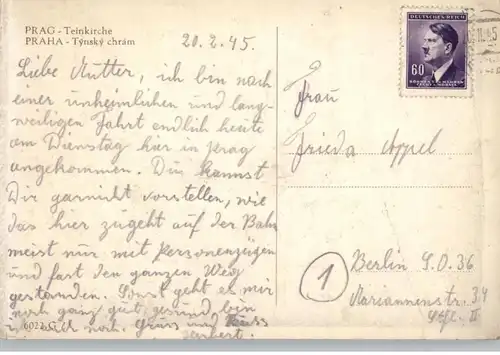 PRAG - Teinkirche
PRAHA - Týnský chrám
20.2.45.
Liebe Mutter, ich bin nach
einer unheimlichen und lang-
weiligen Fahrt endlich heute
am Dienstag hier in Prag
angekommen. Du kannst
Dir garnicht vorstellen, wie
das hier zugeht auf der Bahn
meist nur mit Personenzügen
und fast den ganzen Weg
gestanden. Sonst geht es mir
noch ganz gut, gesund bin
ich auch noch. Gruss und Kuss
6022 G
DEUTSCHES REICH
60
BÖHMEN U. MÄHREN
ČECHY A MORAVA
Frau
Frieda Appel
1
Berlin S.O. 36
Mariannenstr. 34
II